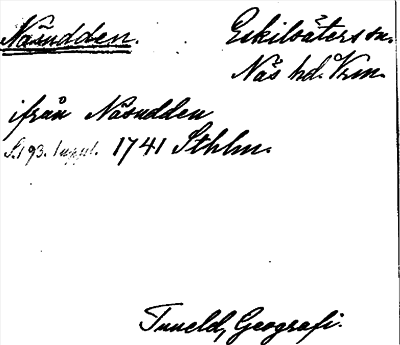 Näsudden.
Eskilsäters sn.
Näs hd. Vrm.
ifrån Näsudden
S. 193. 1 uppl. 1741 Sthlm.
Tuneld, Geografi.